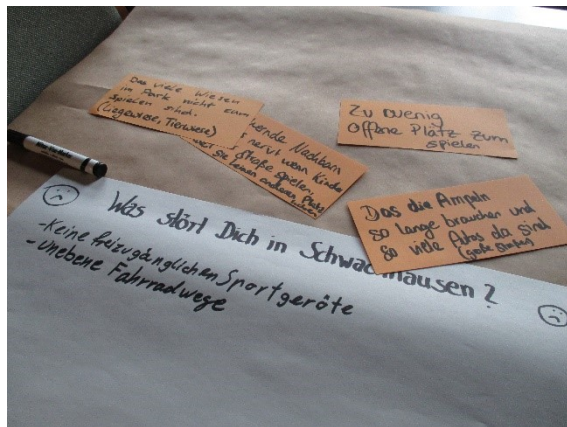 Das viele Wiesen
im Park nicht zum
spielen sind.
(Liegewiese, Tierwiese)
Nachbarn
nervt wenn Kinder
Straße spielen
keinen anderen Platz
Zu wenig
Offene Platz zum
spielen
Das die Ampeln
so lange brauchen und
so viele Autos da sind
(große Straßen)
Was stört Dich in Schwachhausen?
-Keine freizugänglichen Sportgeräte
-Unebene Fahrradwege